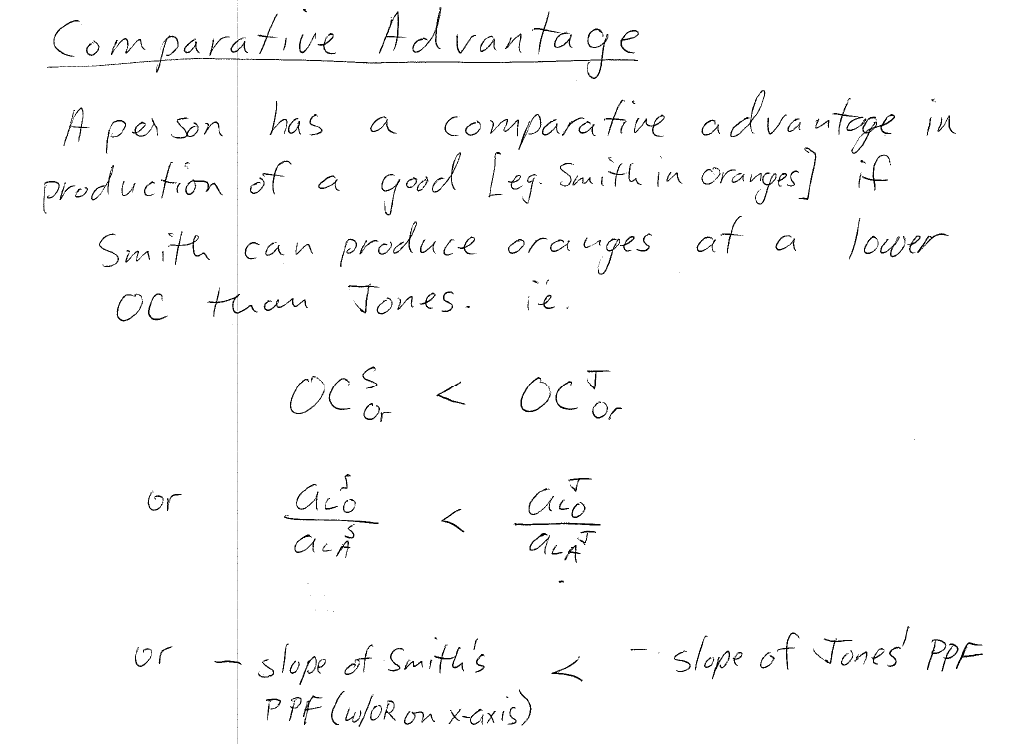 Comparative Advantage
A person has a comparative advantage in
production of a good [eg. Smith in oranges] if
Smith can produce oranges at a lower
OC than Jones. ie.
OC^S_Or < OC^J_Or
or a_LO^S / a_LA^S < a_LO^J / a_LA^J
or - slope of Smith's < - slope of Jones' PPF
PPF (w/OR on x-axis)